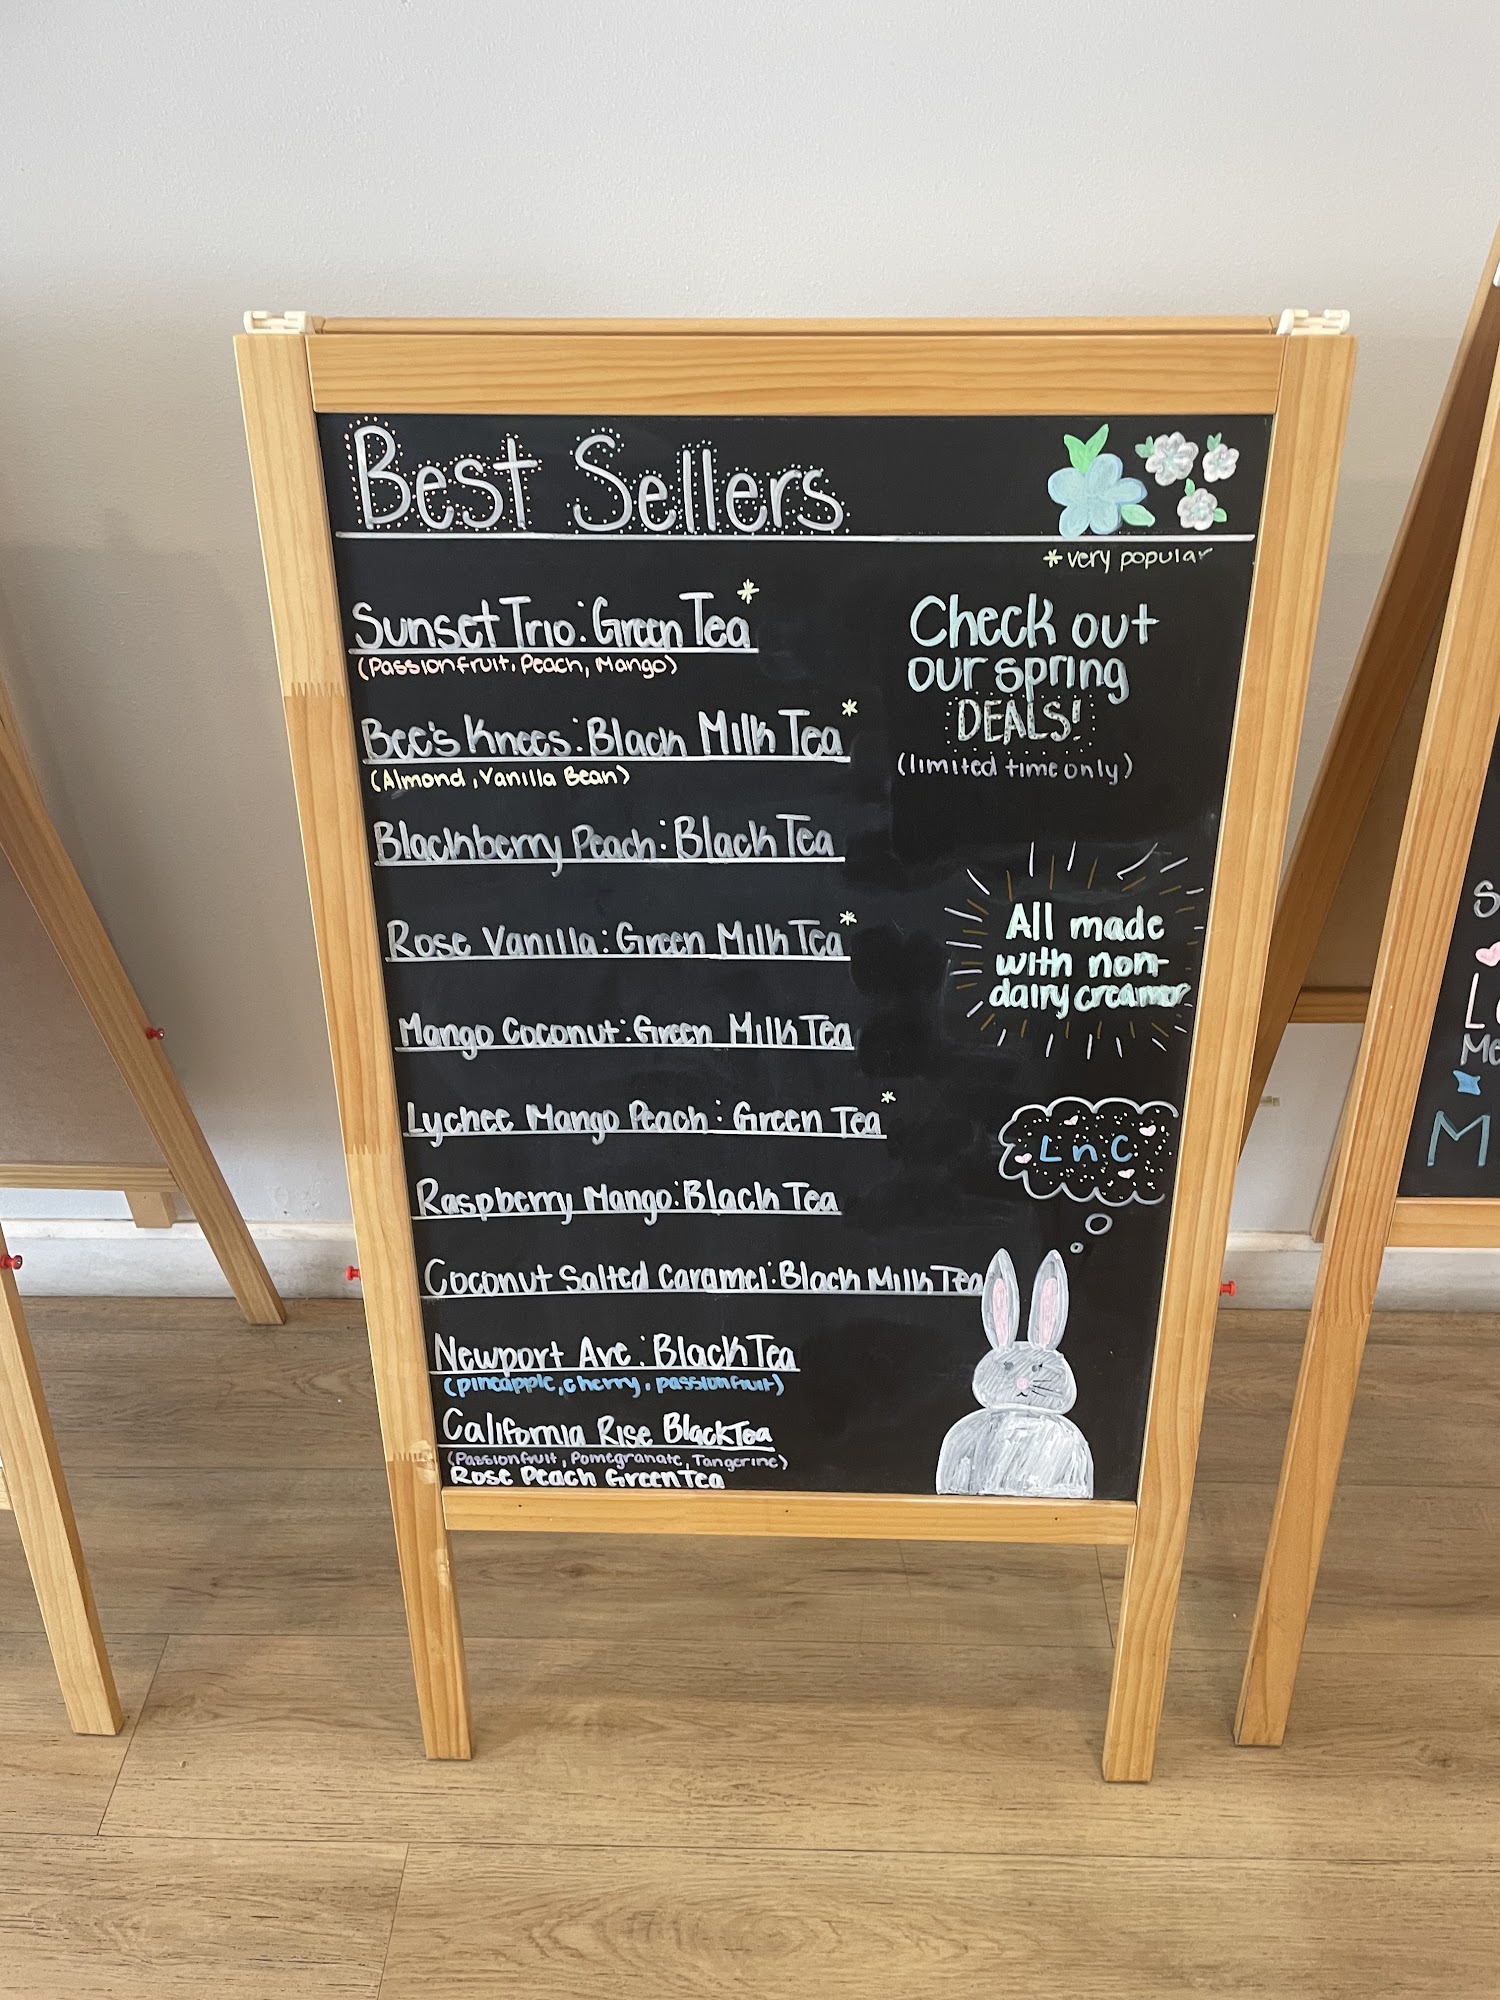 Best Sellers
*very popular
Sunset Trio: Green Tea*
(Passionfruit, Peach, Mango)
Bee's Knees: Black Milk Tea*
(Almond, Vanilla Bean)
Blackberry Peach: Black Tea
Rose Vanilla: Green Milk Tea*
Mango Coconut: Green Milk Tea
Lychee Mango Peach: Green Tea*
Raspberry Mango: Black Tea
Coconut Salted Caramel: Black Milk Tea
Newport Ave: Black Tea
(pineapple, cherry, passionfruit)
California Rise Black Tea
(Passionfruit, Pomegranate, Tangerine)
Rose Peach Green Tea
Check out
our spring
DEALS!
(limited time only)
All made
with non-
dairy creamer
LnC